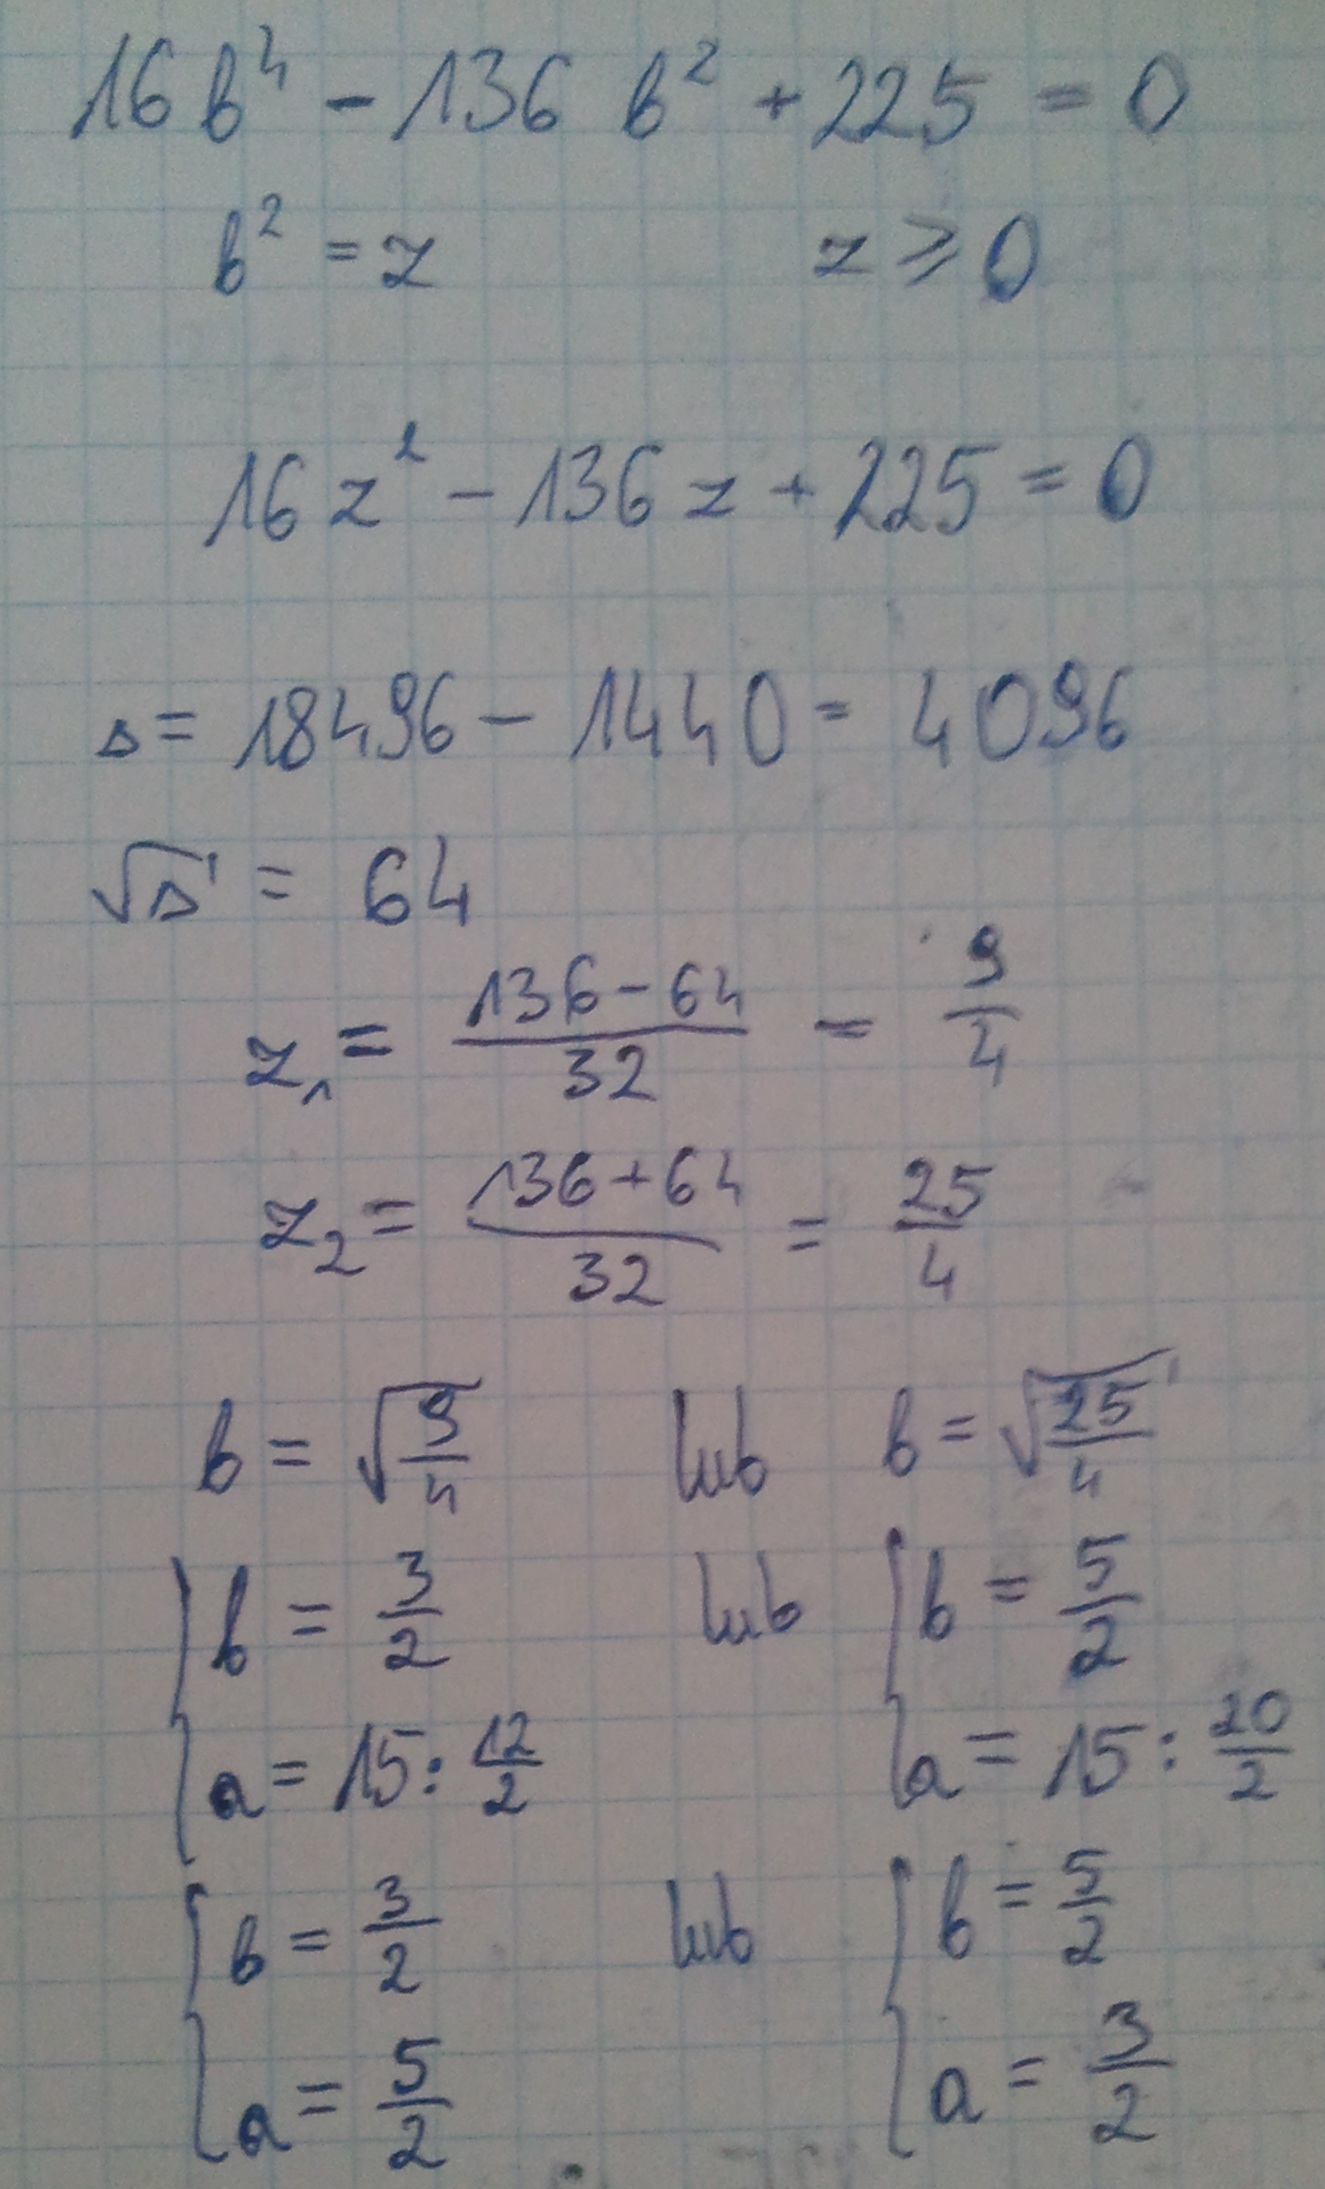 16b⁴ - 136b² + 225 = 0
b² = z z ⩾ 0
16z² - 136z + 225 = 0
Δ = 18496 - 14400 = 4096
√Δ = 64
z₁ = (136-64)/32 = 9/4
z₂ = (136+64)/32 = 25/4
b = √(9/4) lub b = √(25/4)
{ b = 3/2 lub { b = 5/2
a = 15 : 12/2 a = 15 : 20/2
{ b = 3/2 lub { b = 5/2
a = 5/2 a = 3/2